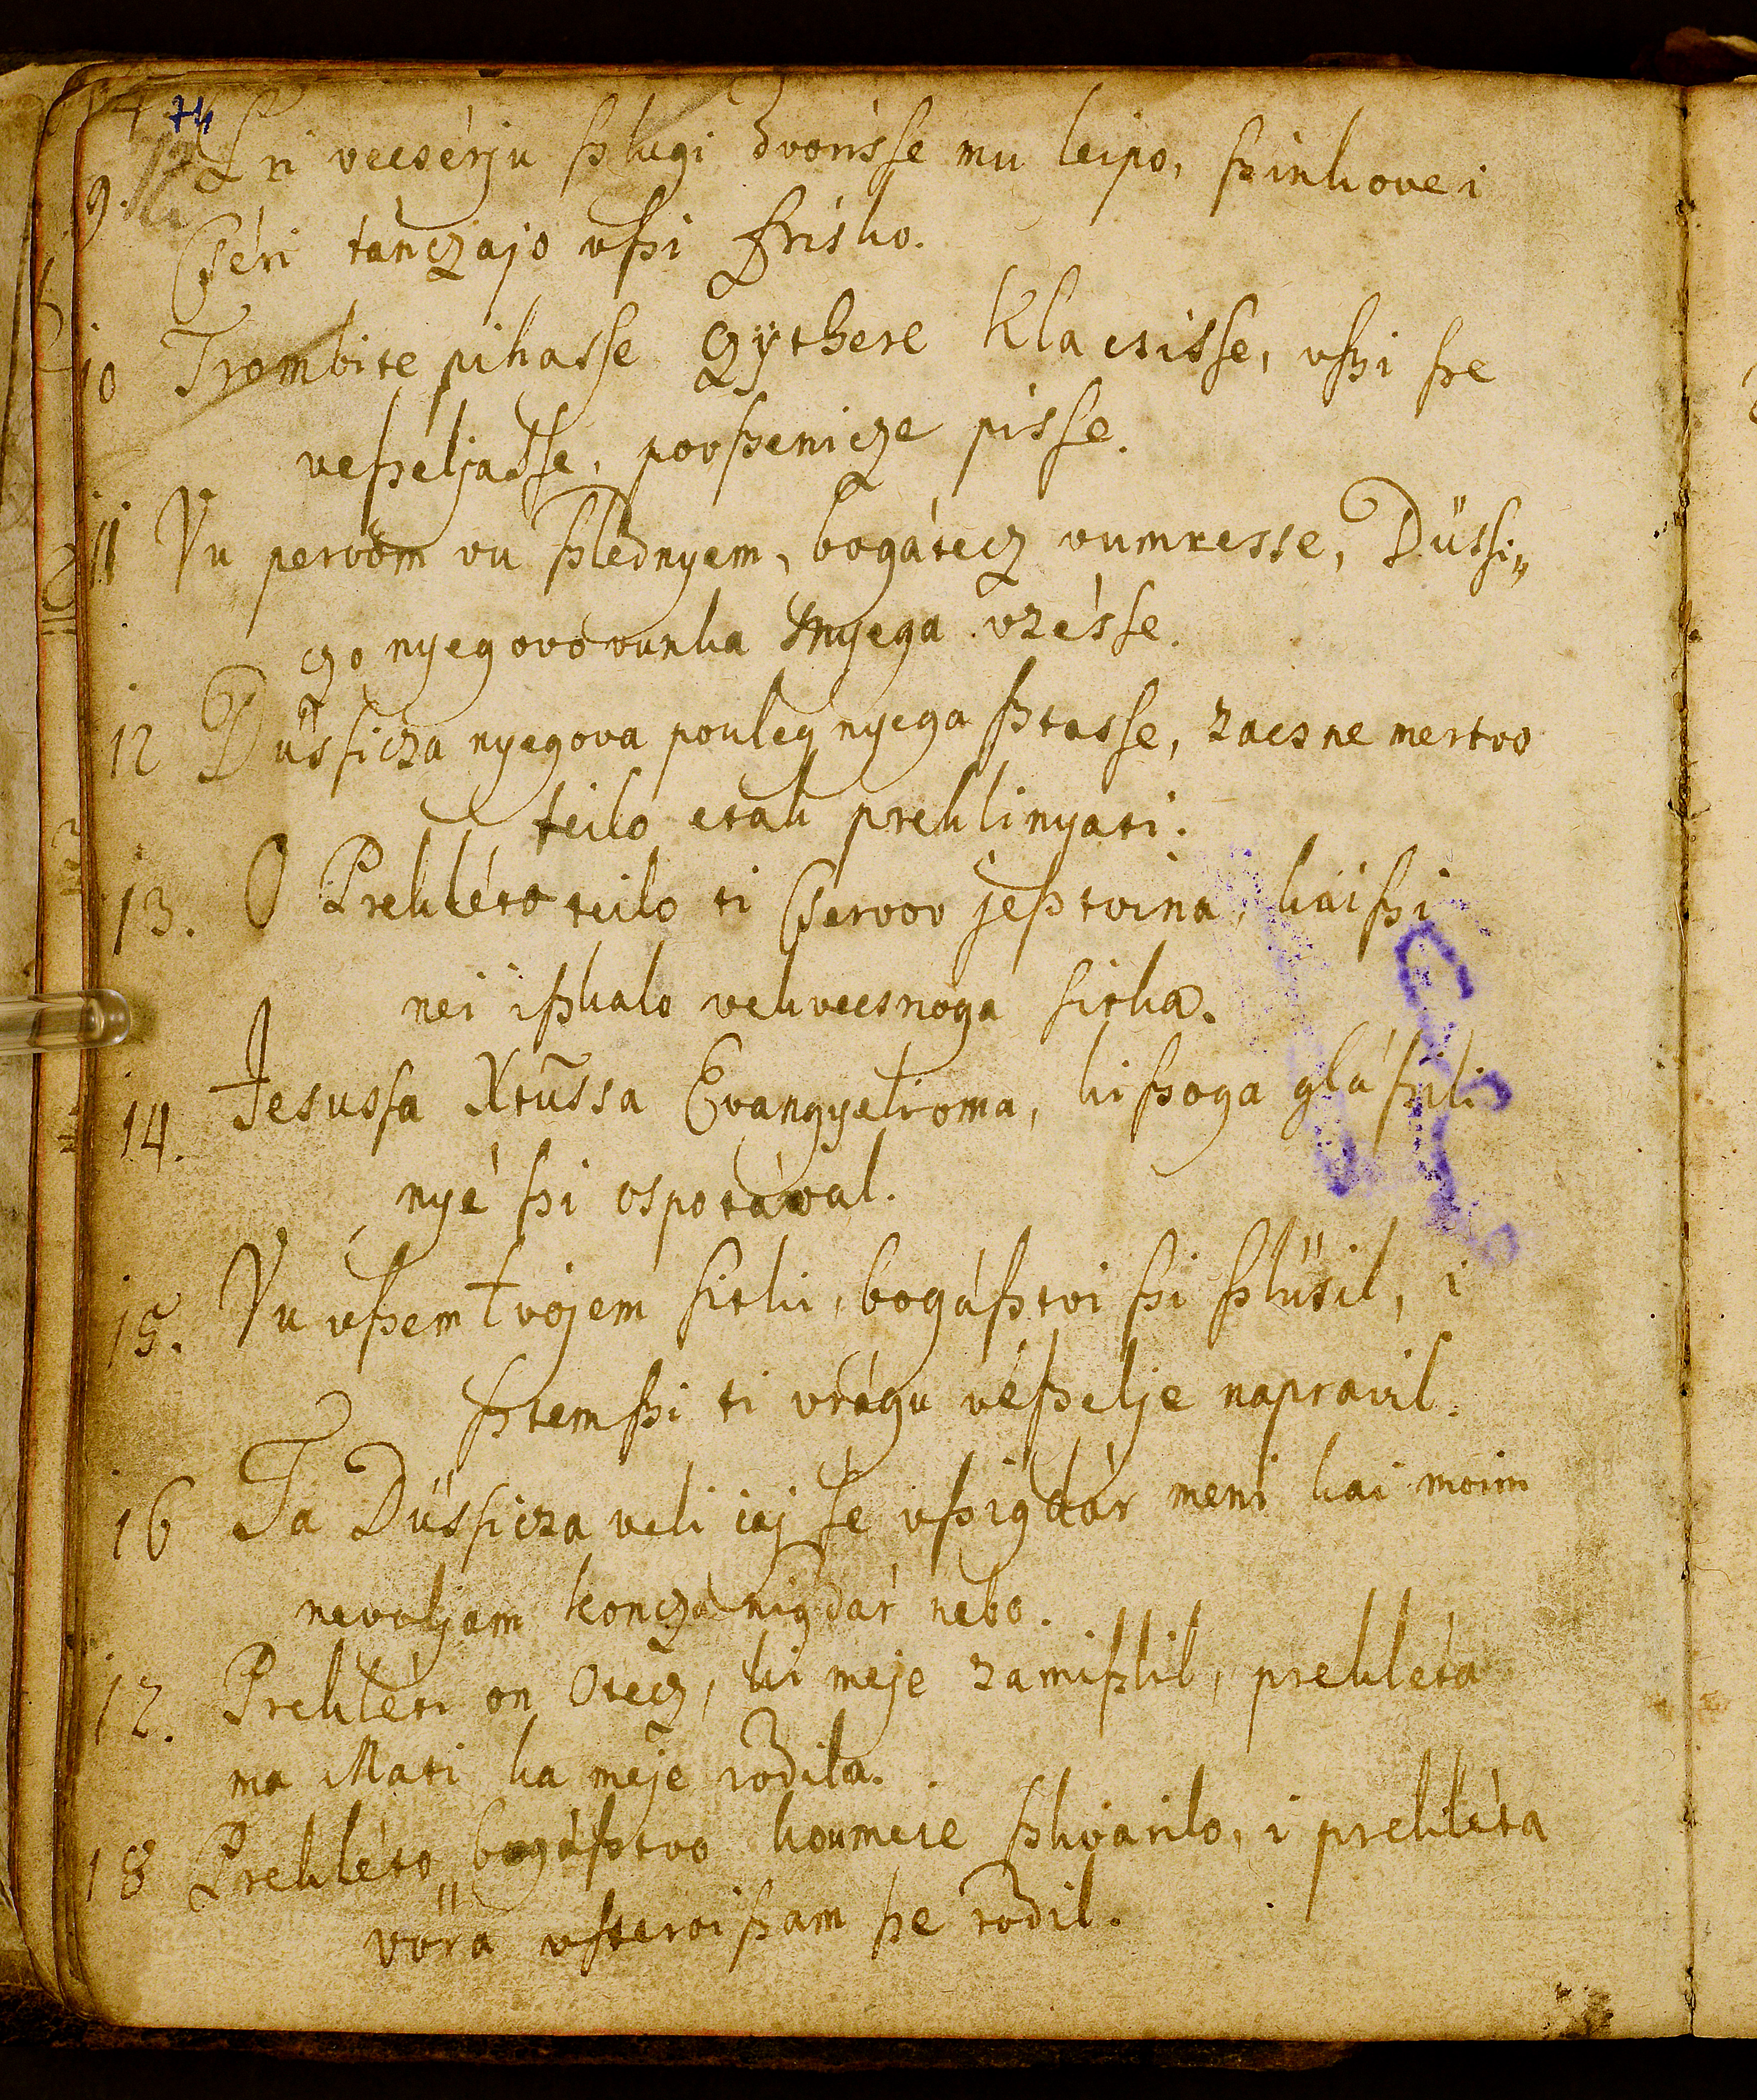 74
9. Pri vecsérju ßlugi dvorisse mu leipo, ßinkove i
cséri tanczajo vßi frisko.
10 Trombite pihasse Czÿthere klacsisse, vßi ße
veßeljasse, povßenicze pisse.
11 Vu pervom vu ßlednyem, bogátecz vumresse, Düssi„
czo nyegovo vunka znyega vzésse.
12 Düssicza nyegova pouleg nyega ßtasse, zacsne mertvo
teilo etak preklinyati.
13. O Prekléto teilo ti cservov jeßtvina, kaißi
nei ißkalo vekvecsnoga sitka.
14. Jesussa Xtussa Evangyelioma, kißoga gláßili
nyé ßi ospotával.
15. Vu vßem tvojem sitki, bogáßtvi ßi ßlüsil, i
ßtemßi ti vrágu véßelje napravil.
16 Ta Düssicza veli jaj se vßigdár meni kai moim
nevoljam koncza nigdár nebo.
17. Prekléti on Otecz, ki meje zamißlil, prekléta
ma Mati ka meje rodila.
18 Prekléto bogáßtvo koumeie ßkvarilo, i prekléta
vöra vsteroißam ße rodil.